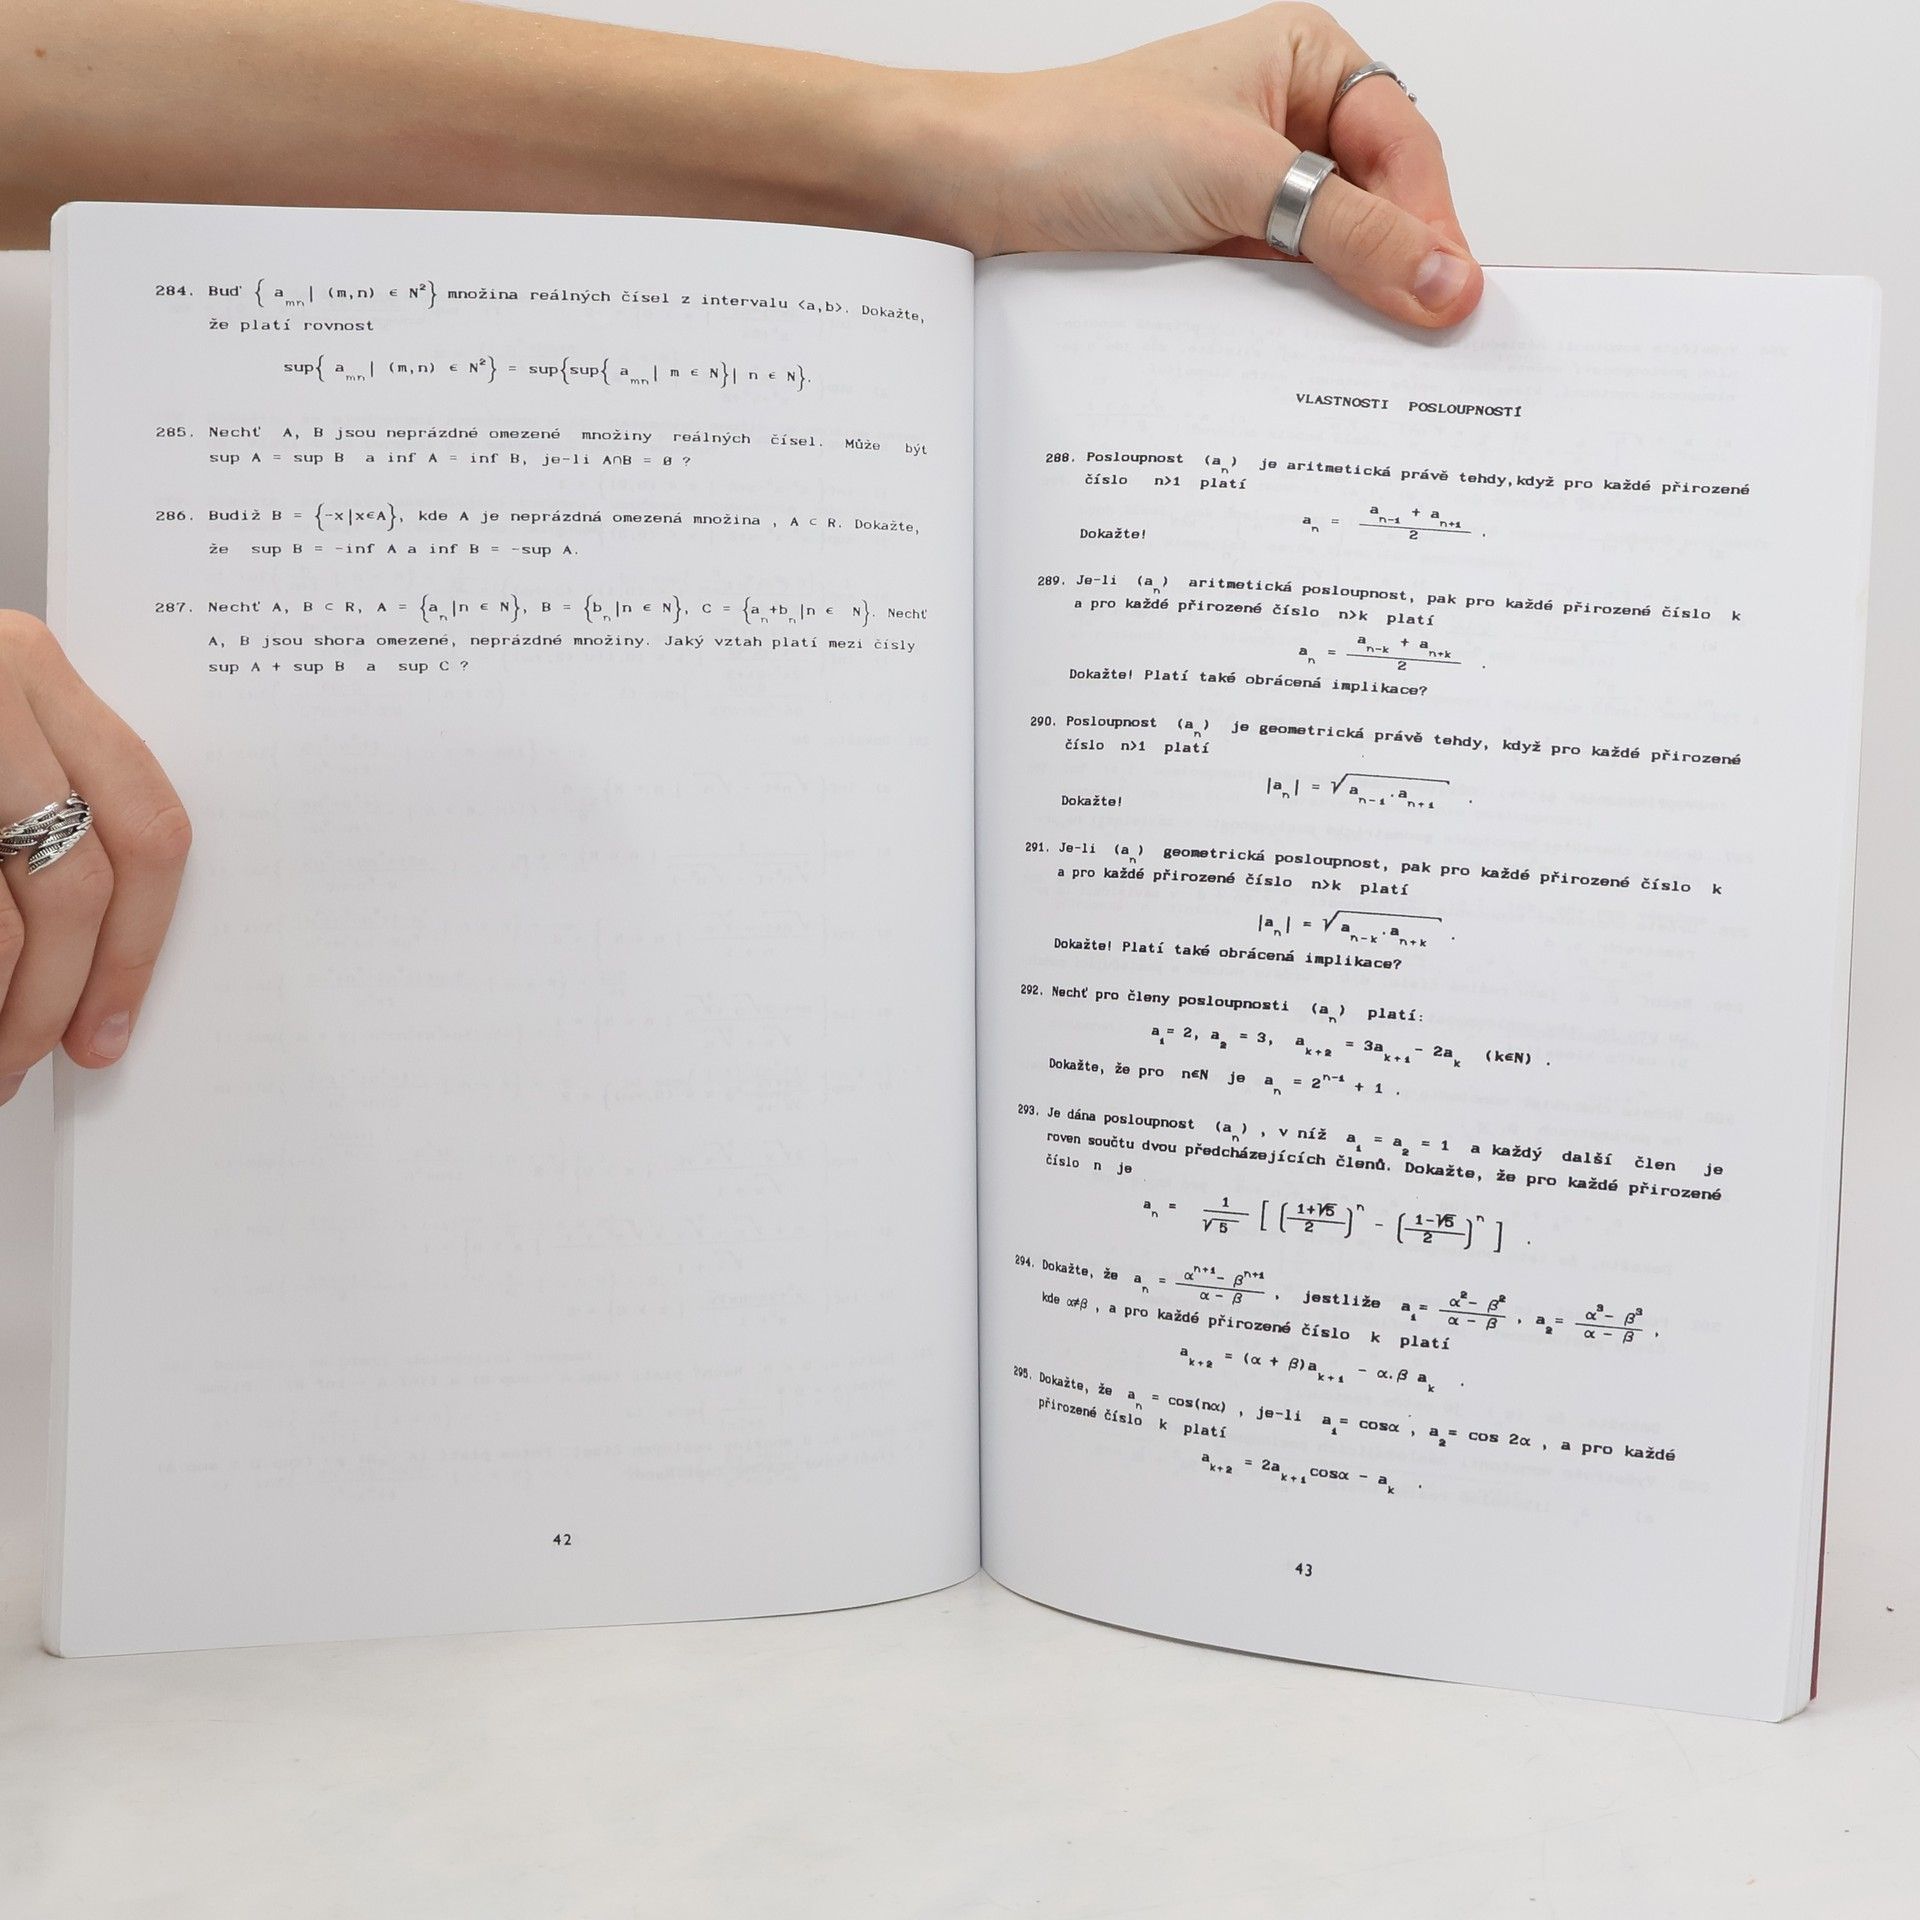 284. Buď { a_mn | (m,n) ∈ N² } množina reálných čísel z intervalu <a,b>. Dokažte,
že platí rovnost
sup{ a_mn | (m,n) ∈ N² } = sup{sup{ a_mn | m ∈ N}| n ∈ N}.
285. Nechť A, B jsou neprázdné omezené množiny reálných čísel. Může být
sup A = sup B a inf A = inf B, je-li A∩B = Ø ?
286. Budiž B = {-x|x∈A}, kde A je neprázdná omezená množina , A ⊂ R. Dokažte,
že sup B = -inf A a inf B = -sup A.
287. Nechť A, B ⊂ R, A = {a_n|n ∈ N}, B = {b_n|n ∈ N}, C = {a_n+b_n|n ∈ N}. Nechť
A, B jsou shora omezené, neprázdné množiny. Jaký vztah platí mezi čísly
sup A + sup B a sup C ?
42
VLASTNOSTI POSLOUPNOSTÍ
288. Posloupnost (a_n) je aritmetická právě tehdy,když pro každé přirozené
číslo n>1 platí
a_n = (a_{n-1} + a_{n+1})/2 .
Dokažte!
289. Je-li (a_n) aritmetická posloupnost, pak pro každé přirozené číslo k
a pro každé přirozené číslo n>k platí
a_n = (a_{n-k} + a_{n+k})/2 .
Dokažte! Platí také obrácená implikace?
290. Posloupnost (a_n) je geometrická právě tehdy, když pro každé přirozené
číslo n>1 platí
|a_n| = √(a_{n-1}.a_{n+1}) .
Dokažte!
291. Je-li (a_n) geometrická posloupnost, pak pro každé přirozené číslo k
a pro každé přirozené číslo n>k platí
|a_n| = √(a_{n-k}.a_{n+k}) .
Dokažte! Platí také obrácená implikace?
292. Nechť pro členy posloupnosti (a_n) platí:
a_1 = 2, a_2 = 3, a_{k+2} = 3a_{k+1} - 2a_k (k∈N) .
Dokažte, že pro n∈N je a_n = 2^{n-1} + 1 .
293. Je dána posloupnost (a_n) , v níž a_1 = a_2 = 1 a každý další člen je
roven součtu dvou předcházejících členů. Dokažte, že pro každé přirozené
číslo n je
a_n = 1/√5 [ ((1+√5)/2)^n - ((1-√5)/2)^n ] .
294. Dokažte, že a_n = (α^{n+1} - β^{n+1})/(α - β) , jestliže a_1 = (α² - β²)/(α - β) , a_2 = (α³ - β³)/(α - β) ,
kde α≠β , a pro každé přirozené číslo k platí
a_{k+2} = (α + β)a_{k+1} - α.β a_k .
295. Dokažte, že a_n = cos(nα) , je-li a_1 = cosα , a_2 = cos 2α , a pro každé
přirozené číslo k platí
a_{k+2} = 2a_{k+1}cosα - a_k .
43